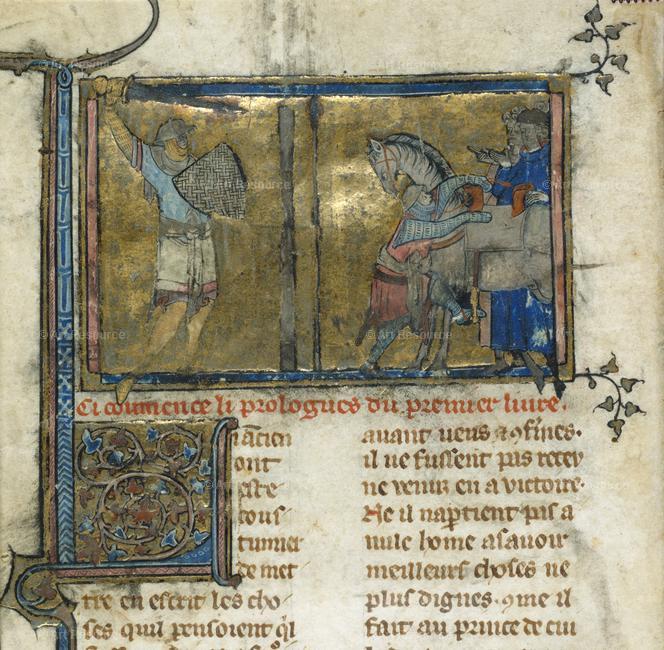 Ci coumence li prologues du premier liure.
i ancien
ont
este
cous
tumier
de met
tre en escrit les cho
ses quil pensoient ql
auant ueus ⁊ 9fines.
il ne fussent pas recey
ne venuz en a victoire.
Ne il napartient pas a
nule home asauoir
meilleurs choses ne
plus dignes. 9me il
fait au prince de cui
© Art Resource